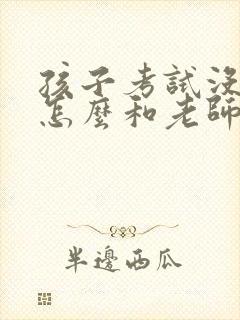 孩子考試沒
怎麼和老師
半邊西瓜